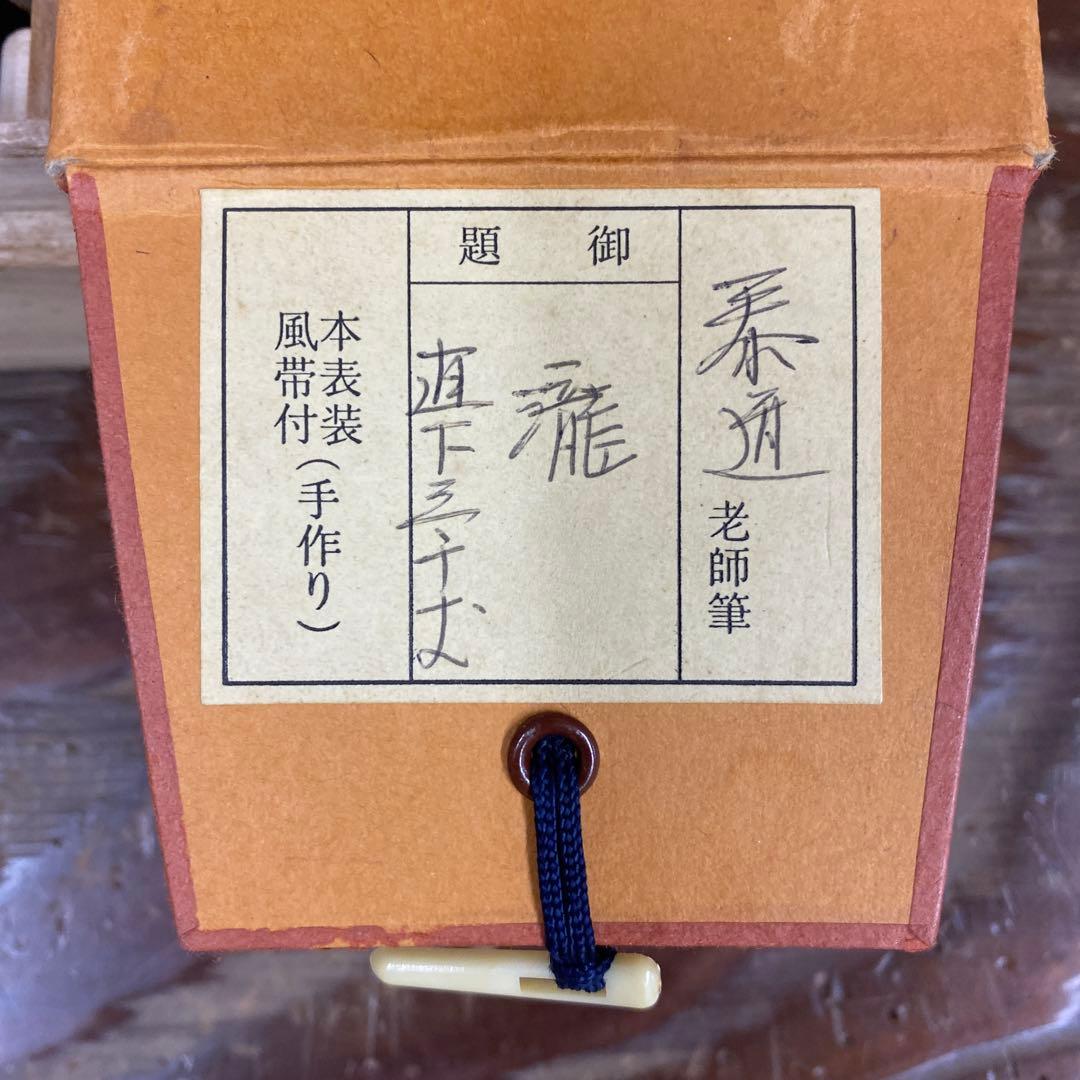 泰道 老師筆
御題
瀧
直下三千丈
本表装
風帯付(手作り)